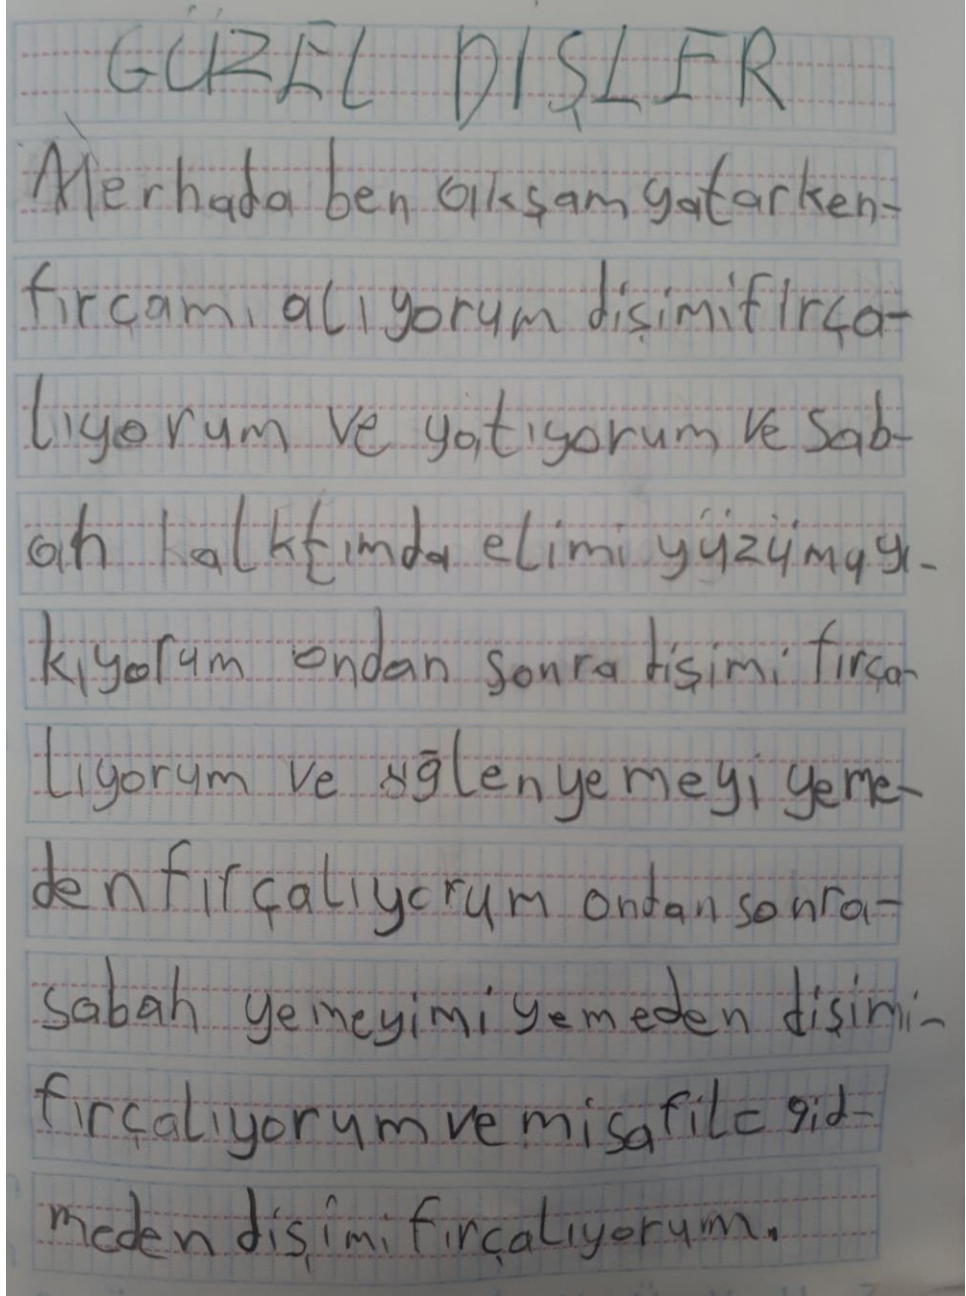 GÜZEL DIŞLER
Merhada ben akşam yatarken-
fırçamı alıyorum dişimi fırça-
lıyorum ve yatıyorum ve sab-
ah kalktımda elimi yüzümü yı-
kıyorum ondan sonra dişimi fırça-
lıyorum ve öğlen yemeyi yeme-
den fırçalıyorum ondan sonra-
sabah yemeyimi yemeden dişimi-
fırçalıyorum ve misafilc gid-
meden dişimi fırçalıyorum.